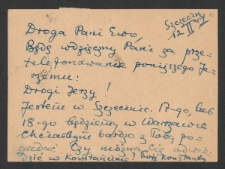 Szczecin
12 II
Droga Pani Ewo,
Będę wdzięczny Pani za prze-
telefonowanie poniższego Je-
rzemu:
Drogi Jerzy!
Jestem w Szczecinie. 17-go, lub
18-go będziemy w Warszawie
Chciałbym bardzo z Tobą po-
gadać. Czy można Cię odwie-
dzić w Konstancinie? Twój Konstanty